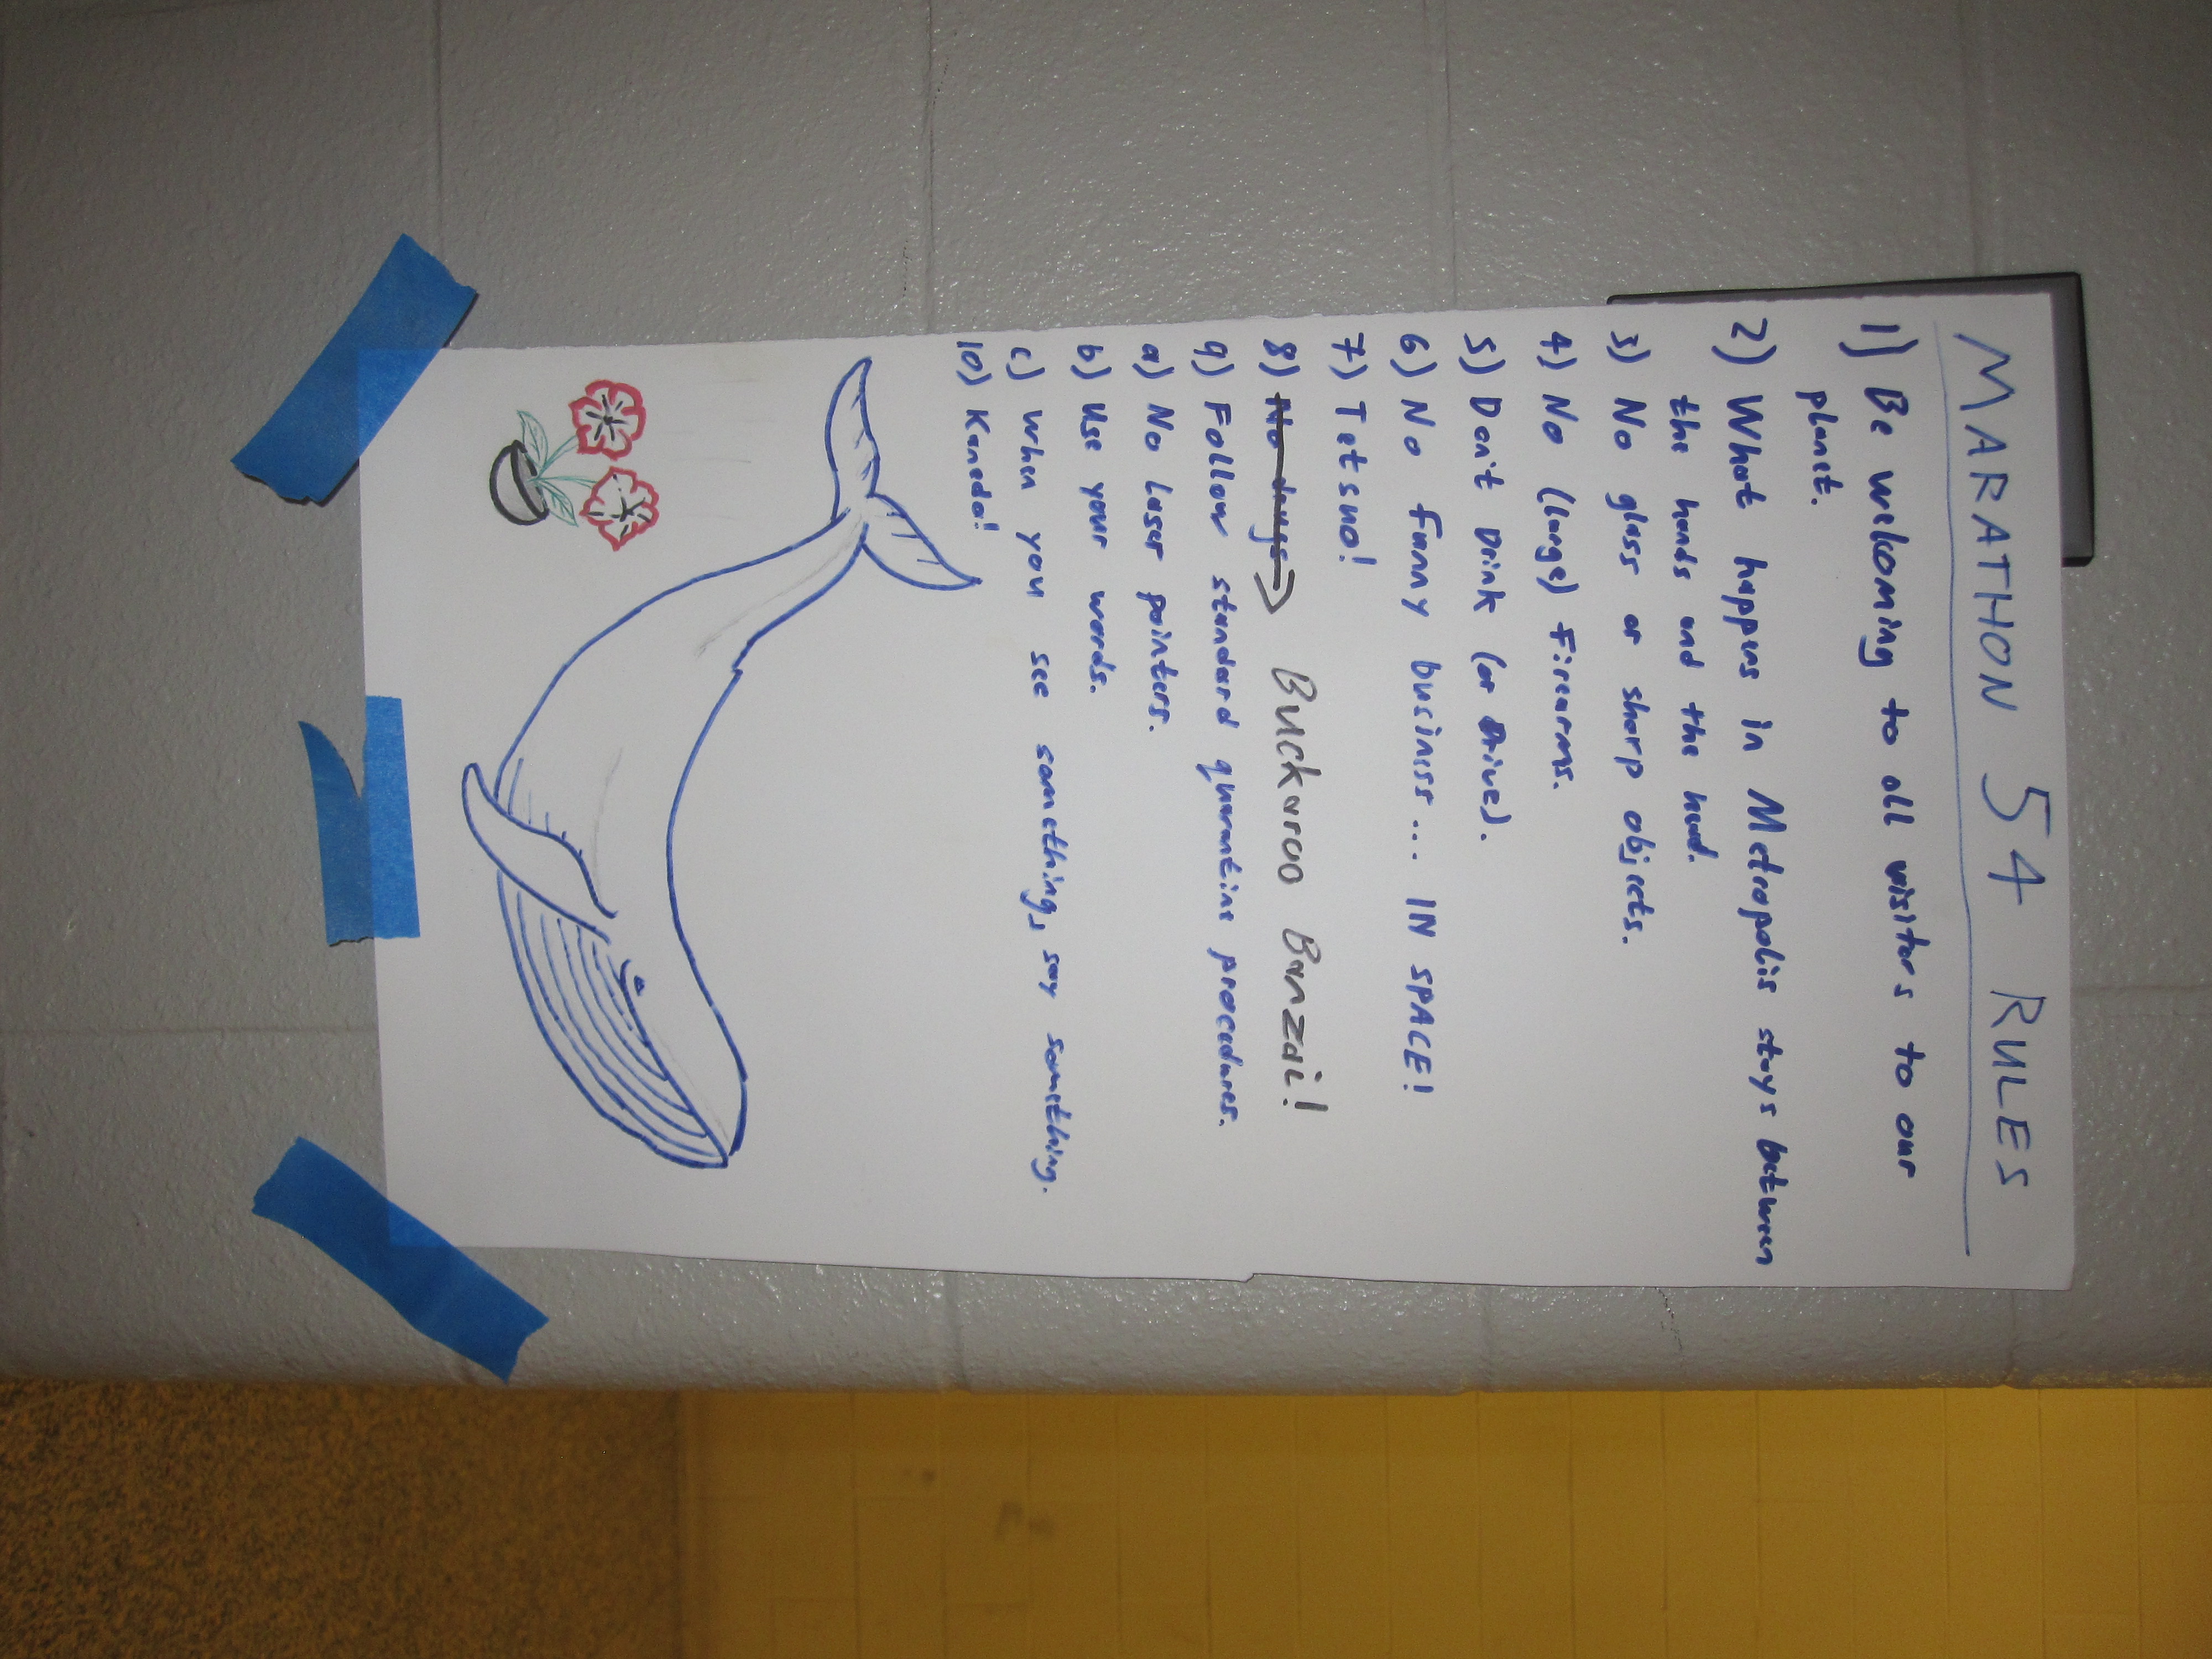 MARATHON 54 RULES
1) Be welcoming to all visitors to our
planet.
2) What happens in Metropolis stays between
the hands and the head.
3) No glass or sharp objects.
4) No (large) Firearms.
5) Don't Drink (or Drive).
6) No funny business... IN SPACE!
7) Tetsuo!
8) No drugs Buckaroo Banzai!
9) Follow standard quarantine procedures.
a) No laser pointers.
b) Use your words.
c) When you see something, say something.
10) Kaneda!